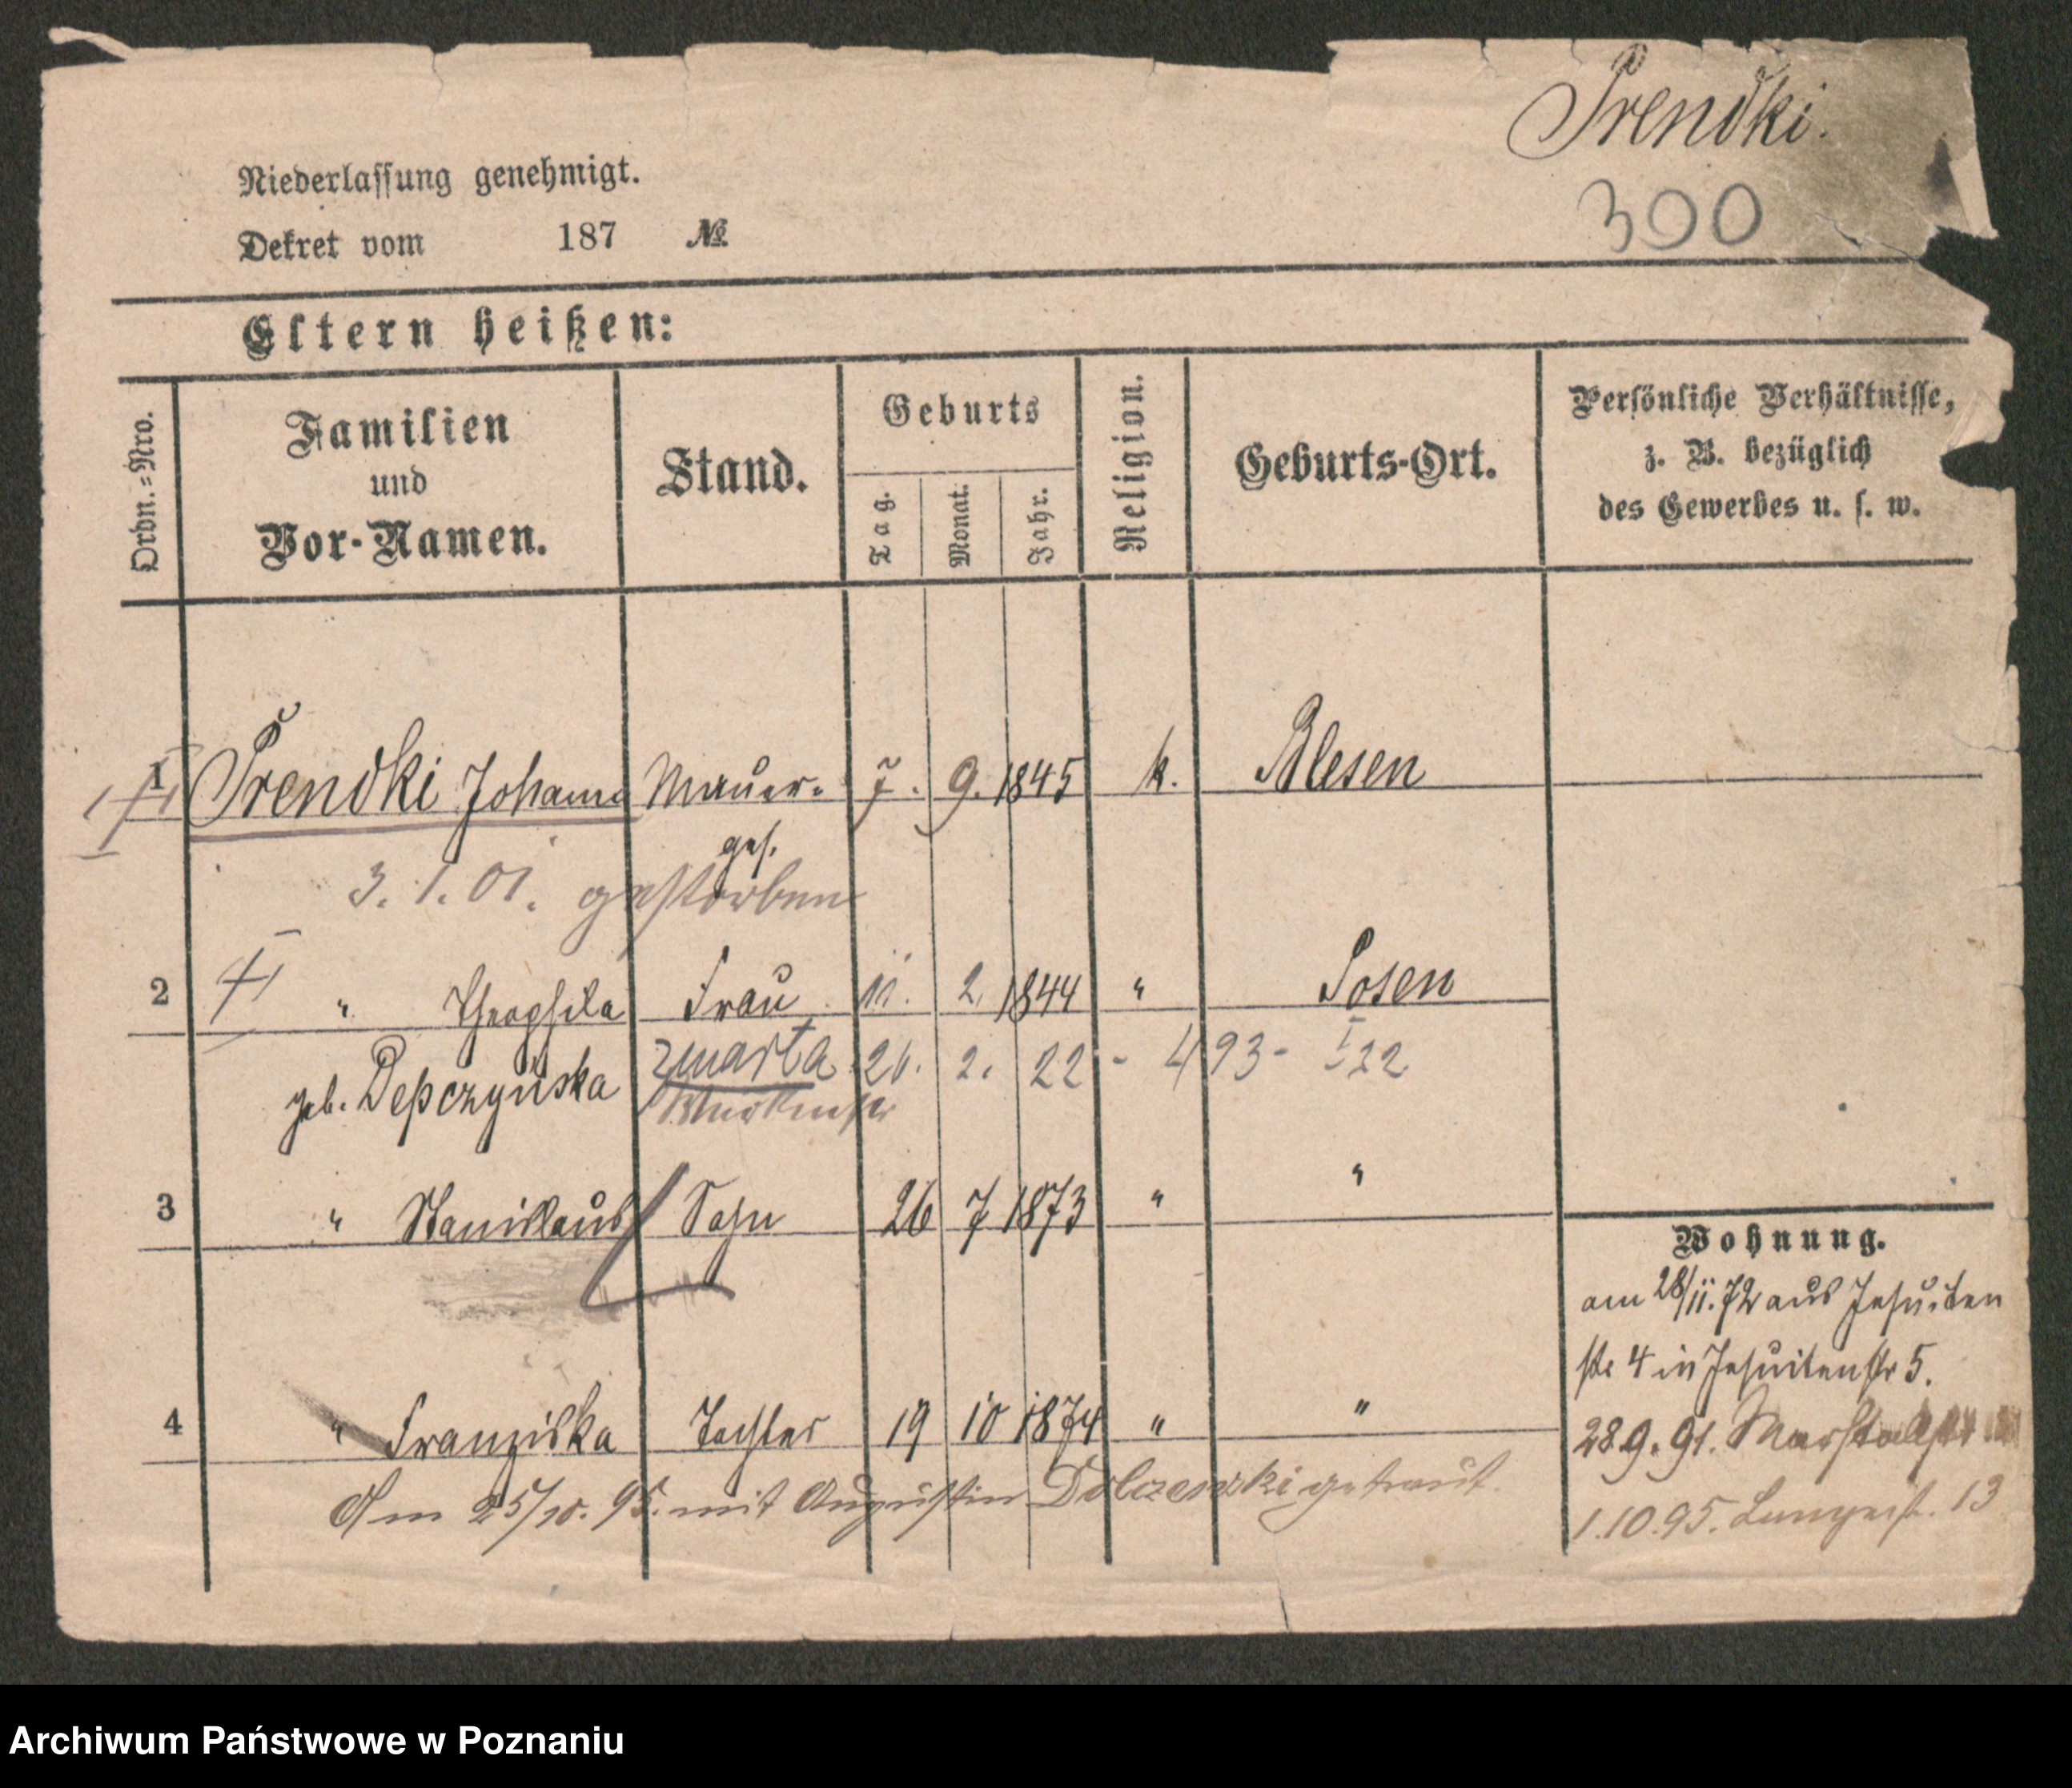 Prendki.
300
Niederlassung genehmigt.
Dekret vom 187 №
Eltern heißen:
Ordn.=Nro.
Familien und Vor-Namen.
Stand.
Geburts
Tag.
Monat.
Jahr.
Religion.
Geburts-Ort.
Persönliche Verhältnisse,
z. B. bezüglich
des Gewerbes u. s. w.
1 Prendki Johann Maurer- 7. 9. 1845 k. Blesen
ges.
3. 1. 01. gestorben
2 " Theophila Frau 11. 2. 1844 " Posen
geb. Depczyńska zmarła 2. 22 - 493 - I 22
3 " Stanislaus Sohn 26 7 1873 " "
Wohnung.
am 28/11. 72 aus Jesuiten
str 4 in Jesuitenstr 5.
4 " Franziska Tochter 19 10 1874 " "
28 9. 91. Marstallstr
Am 25/10. 95. mit Augustin getraut.
1. 10. 95. Langest. 13
Archiwum Państwowe w Poznaniu